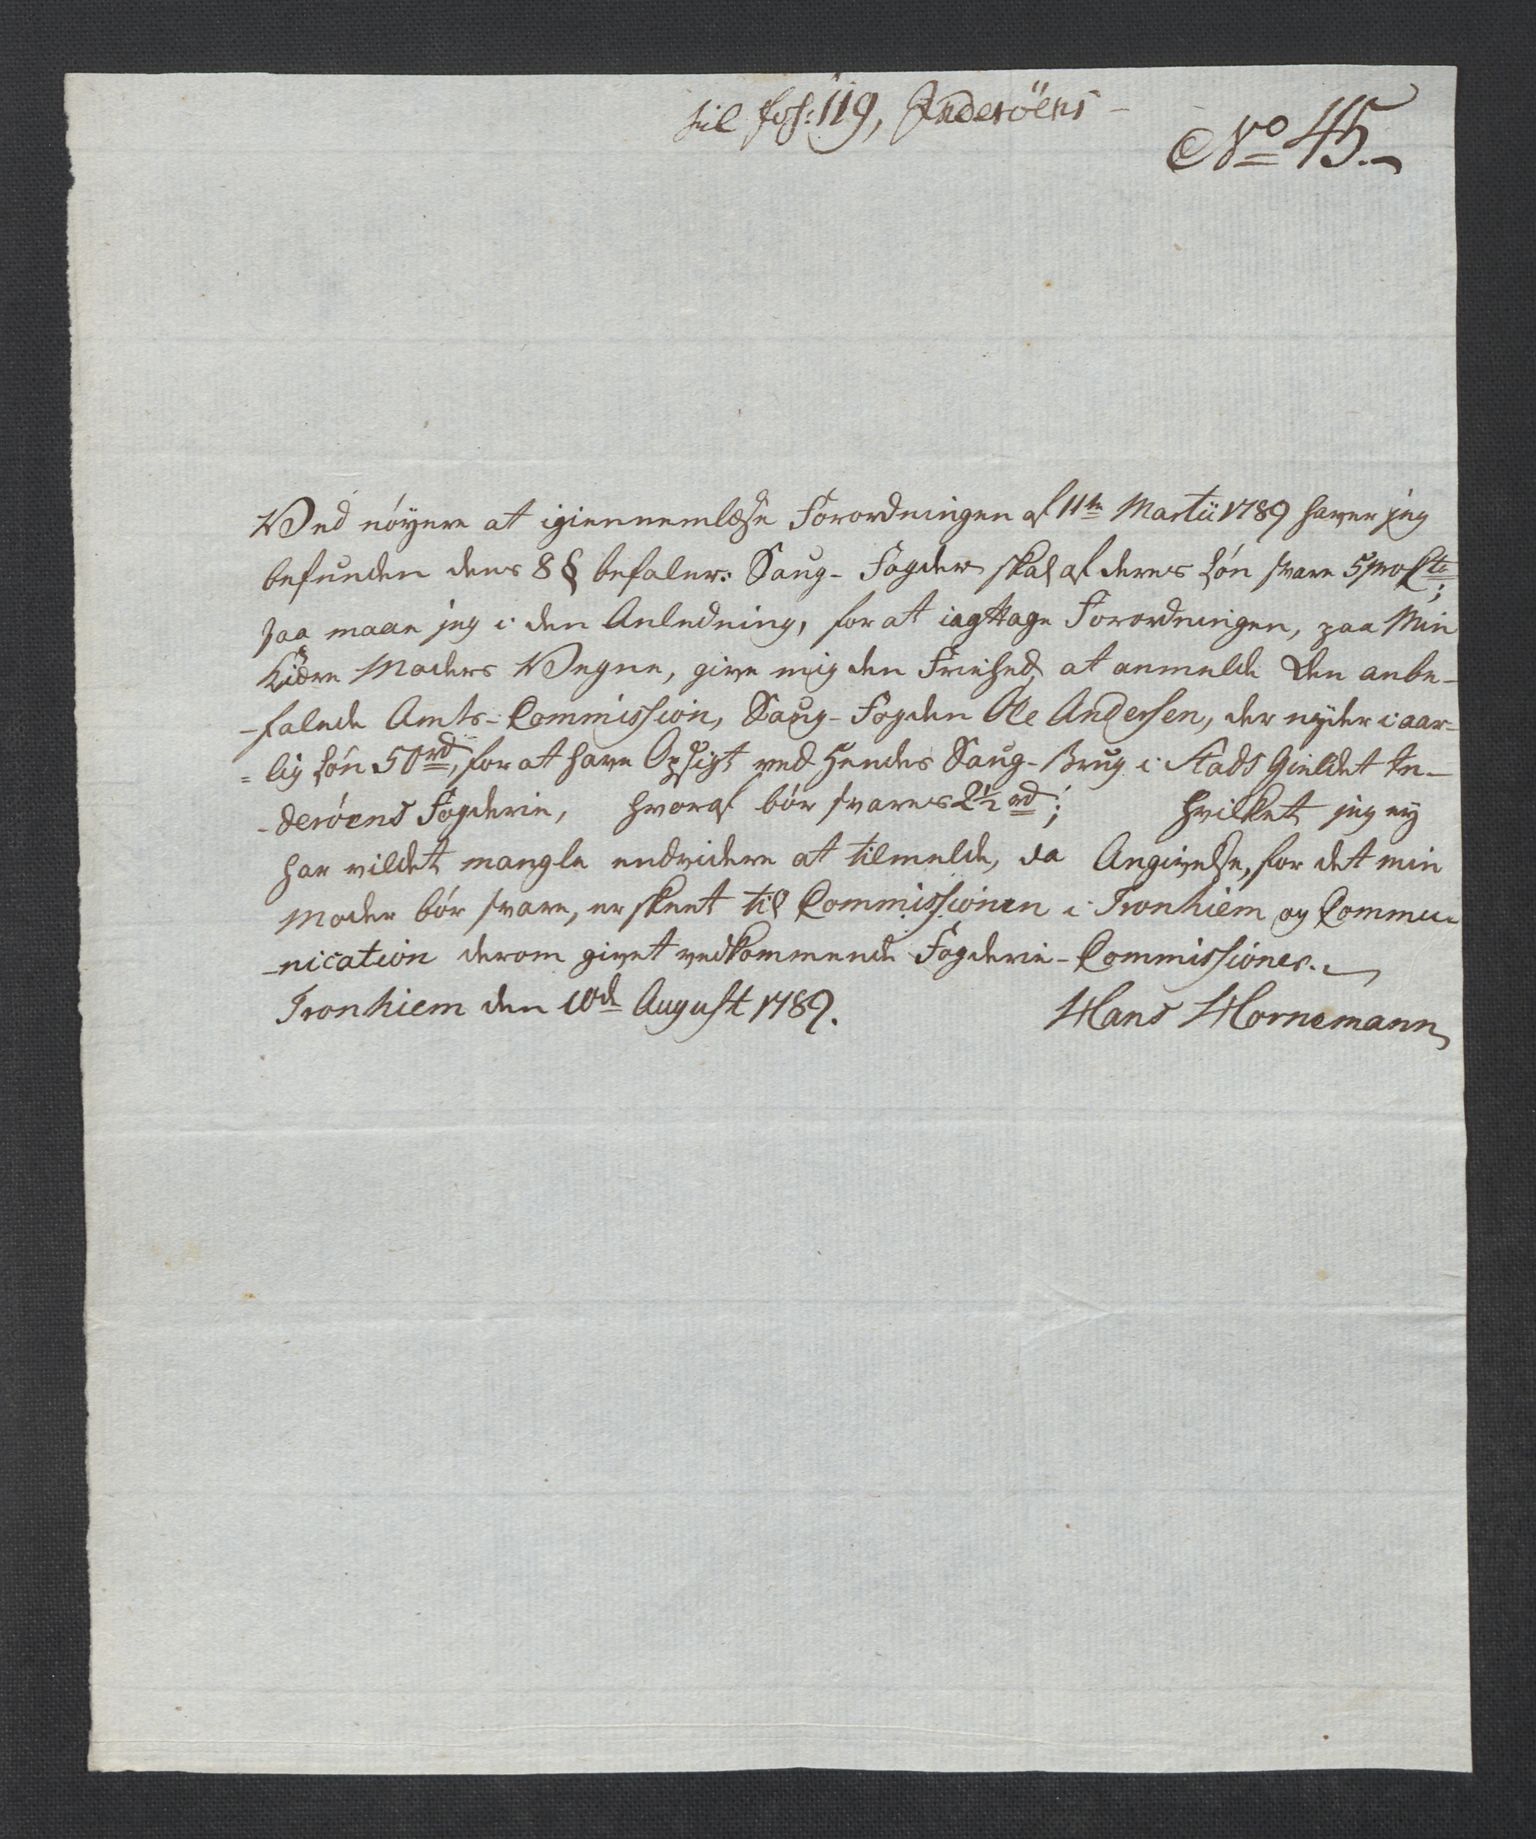 til fol: 119, Inderöens
No 45.
Ved nöyere at igiennemlæse Forordningen af 11te Martii 1789 haver jeg
befunden dens 8 § befaler: Saug-Fogder skal af deres Lön svare 5 pro Cto;
saa maae jeg i den Anledning, for at iagttage Forordningen, paa Min
Kiære Moders Vegne, give mig den Friehed, at anmelde den anbe-
-falede Amts-Commission, Saug-Fogden Ole Andersen, der nyder i aar-
=lig Lön 50 rd, for at have Opsigt ved Hendes Saug-Brug i Stads Gieldet In-
-deröens Fogderie, hvoraf bör svares 2½ rd; hvilket jeg ey
har vildet mangle endvidere at tilmelde, da Angivelse, for det min
Moder bör svare, er skeet til Commissionen i Tronhiem og Commu-
-nication derom givet vedkommende Fogderie-Commissioner.
Tronhiem den 10de August 1789.
Hans Hornemann